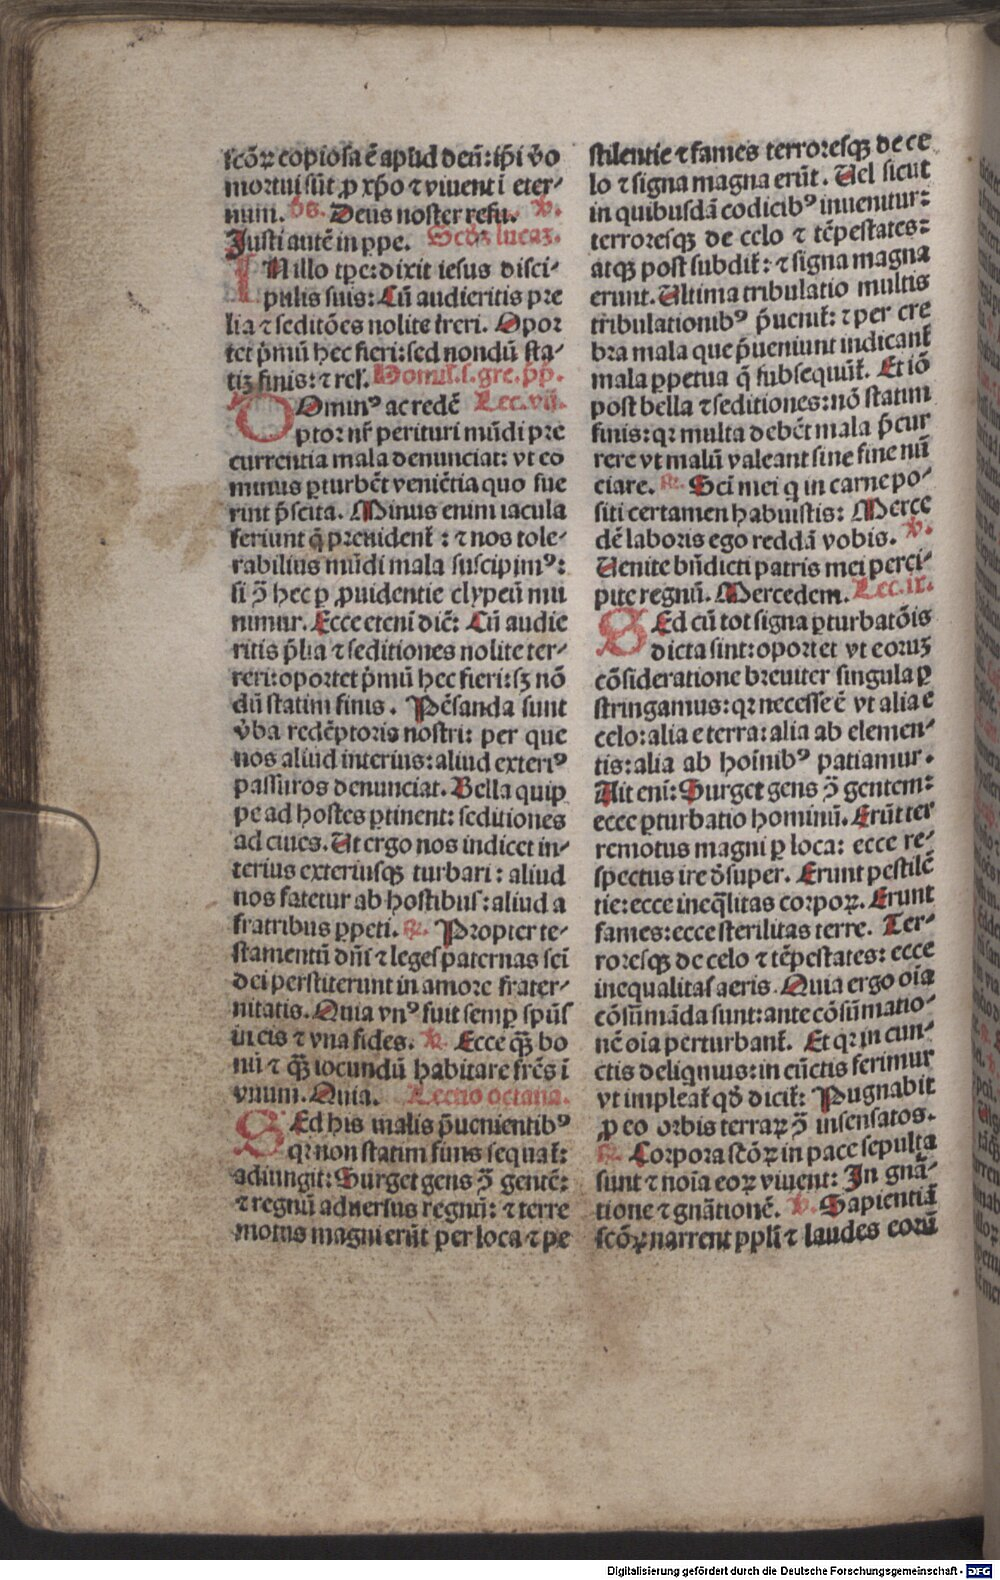 scōꝝ copiosa ē apud deū: ip̄i v̄o
mortui sūt ꝓ xp̄o ⁊ viuent ī eter⸗
num. ps. Deus noster refu. v̄.
Justi autē in ꝑpe. Scd̄ꝫ lucaꝫ.
IN illo tꝑe: dixit iesus disci⸗
pulis suis: Cū audieritis pre
lia ⁊ seditōes nolite t̄reri. Opor
tet p̄mū hec fieri: sed nondū sta⸗
tiꝫ finis: ⁊ rel̄. Homil̄. s. gre. p̄p̄.
DOminꝰ ac redē Lec. vij.
ptor nr̄ perituri mūdi pre
currentia mala denunciat: vt eo
minus ꝑturbēt veniētia quo fue
rint p̄scita. Minus enim iacula
feriunt q̄ preuident̄: ⁊ nos tole⸗
rabilius mūdi mala suscipimꝰ:
si ꝯ̄ hec ꝑ ꝓuidentie clypeū mu
nimur. Ecce etenī dic̄: Cū audie
ritis p̄lia ⁊ seditiones nolite ter⸗
reri: oportet p̄mū hec fieri: sꝫ nō
dū statim finis. Pēsanda sunt
v̄ba redēptoris nostri: per que
nos aliud interius: aliud exteriꝰ
passuros denunciat. Bella quip
pe ad hostes ꝑtinent: seditiones
ad ciues. Ut ergo nos indicet in⸗
terius exteriusqꝫ turbari: aliud
nos fatetur ab hostibus: aliud a
fratribus ꝑpeti. ꝶ. Propter te⸗
stamentū dn̄i ⁊ leges paternas sci
dei perstiterunt in amore frater⸗
nitatis. Quia vnꝰ fuit semꝑ spūs
in eis ⁊ vna fides. v̄. Ecce qꝫ bo
nū ⁊ qꝫ iocundū habitare fr̄es ī
vnum. Quia. Lectio octaua.
SEd his malis p̄uenientibꝰ
qꝛ non statim finis sequat̄:
adiungit: Surget gens ꝯ̄ gentē:
⁊ regnū aduersus regnū: ⁊ terre
motus magni erūt per loca ⁊ pe
stilentie ⁊ fames terroresqꝫ de ce
lo ⁊ signa magna erūt. Uel sicut
in quibusdā codicibꝰ inuenitur:
terroresqꝫ de celo ⁊ tēpestates:
atqꝫ post subdit̄: ⁊ signa magna
erunt. Ultima tribulatio multis
tribulationibꝰ p̄uenit̄: ⁊ per cre
bra mala que p̄ueniunt indicant̄
mala ꝑpetua q̄ subsequūt̄. Et iō
post bella ⁊ seditiones: nō statim
finis: qꝛ multa debēt mala p̄cur
rere vt malū valeant sine fine nū
ciare. ꝶ. Scī mei q in carne po⸗
siti certamen habuistis: Merce
dē laboris ego reddā vobis. v̄.
Uenite bn̄dicti patris mei perci⸗
pite regnū. Mercedem. Lec. ix.
SEd cū tot signa ꝑturbatōis
dicta sint: oportet vt eoruꝫ
cōsideratione breuiter singula ꝑ
stringamus: qꝛ necesse ē vt alia e
celo: alia e terra: alia ab elemen⸗
tis: alia ab hoīnibꝰ patiamur.
Ait eni: Surget gens ꝯ̄ gentem:
ecce ꝑturbatio hominū. Erūt ter
remotus magni ꝑ loca: ecce re⸗
spectus ire d̄super. Erunt pestilē
tie: ecce ineq̄litas corpoꝝ. Erunt
fames: ecce sterilitas terre. Ter⸗
roresqꝫ de celo ⁊ tēpestates: ecce
inequalitas aeris. Quia ergo oīa
cōsūmāda sunt: ante cōsūmatio⸗
nē oīa perturbant̄. Et qꝛ in cun⸗
ctis deliqmus: in cūctis ferimur
vt impleat̄ qd̄ dicit̄: Pugnabit
ꝓ eo orbis terraꝝ ꝯ̄ insensatos.
ꝶ. Corpora scōꝝ in pace sepulta
sunt ⁊ noīa eoꝝ viuent: In gnā⸗
tione ⁊ gnātionē. v̄. Sapientiā
scōꝝ narrent ppli ⁊ laudes eorū
Digitalisierung gefördert durch die Deutsche Forschungsgemeinschaft - DFG